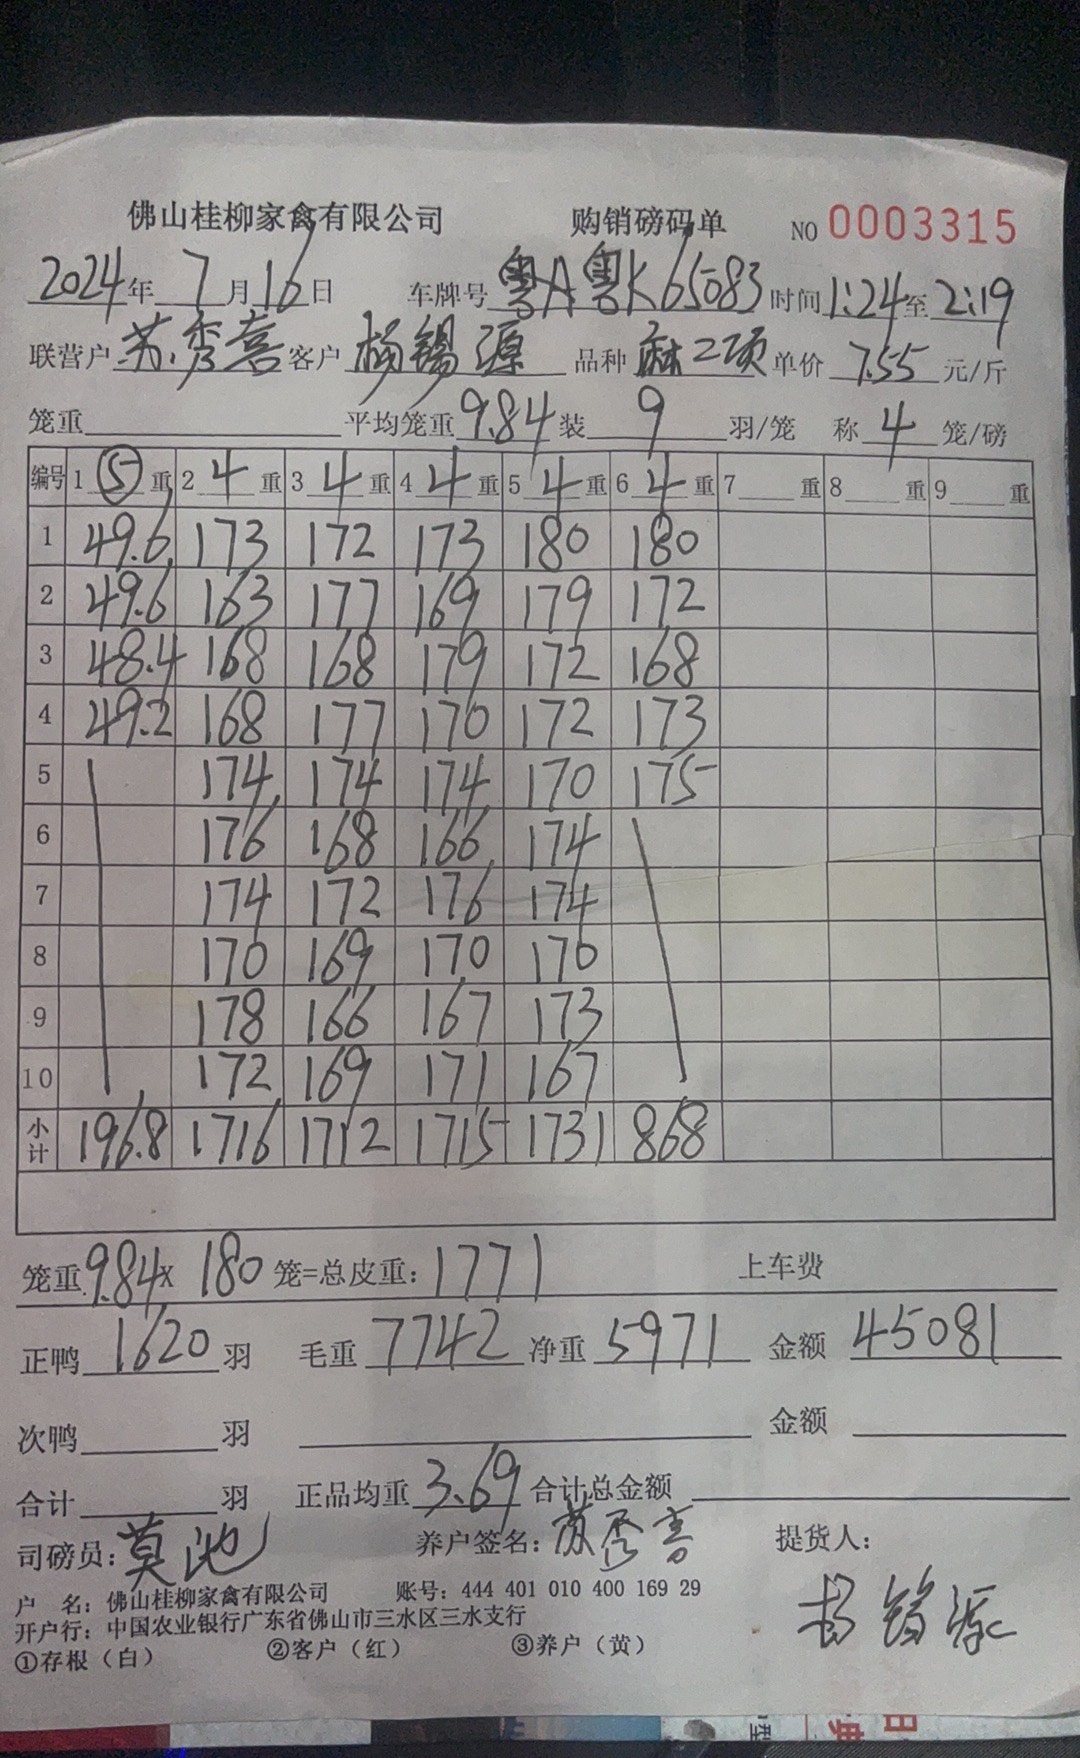 佛山桂柳家禽有限公司 购销磅码单 NO 0003315
2024年 7月 16日 车牌号 粤K65083 时间 1:24 至 2:19
联营户 苏秀喜 客户 杨锡源 品种 麻二项 单价 7.55 元/斤
笼重 平均笼重 9.84 装 9 羽/笼 称 4 笼/磅
编号 1 ⑤ 重 2 4 重 3 4 重 4 4 重 5 4 重 6 4 重 7 重 8 重 9 重
1 49.6 173 172 173 180 180
2 49.6 163 177 169 179 172
3 48.4 168 168 179 172 168
4 49.2 168 177 170 172 173
5 174 174 174 170 175
6 176 168 166 174
7 174 172 176 174
8 170 169 170 170
9 178 166 167 173
10 172 169 171 167
小计 196.8 1716 1712 1715 1731 868
笼重 9.84 x 180 笼=总皮重: 1771 上车费
正鸭 1620 羽 毛重 7742 净重 5971 金额 45081
次鸭 羽 金额
合计 羽 正品均重 3.69 合计总金额
司磅员: 莫池 养户签名: 苏秀喜 提货人:
杨锡源
户 名: 佛山桂柳家禽有限公司 账号: 444 401 010 400 169 29
开户行: 中国农业银行广东省佛山市三水区三水支行
①存根（白） ②客户（红） ③养户（黄）